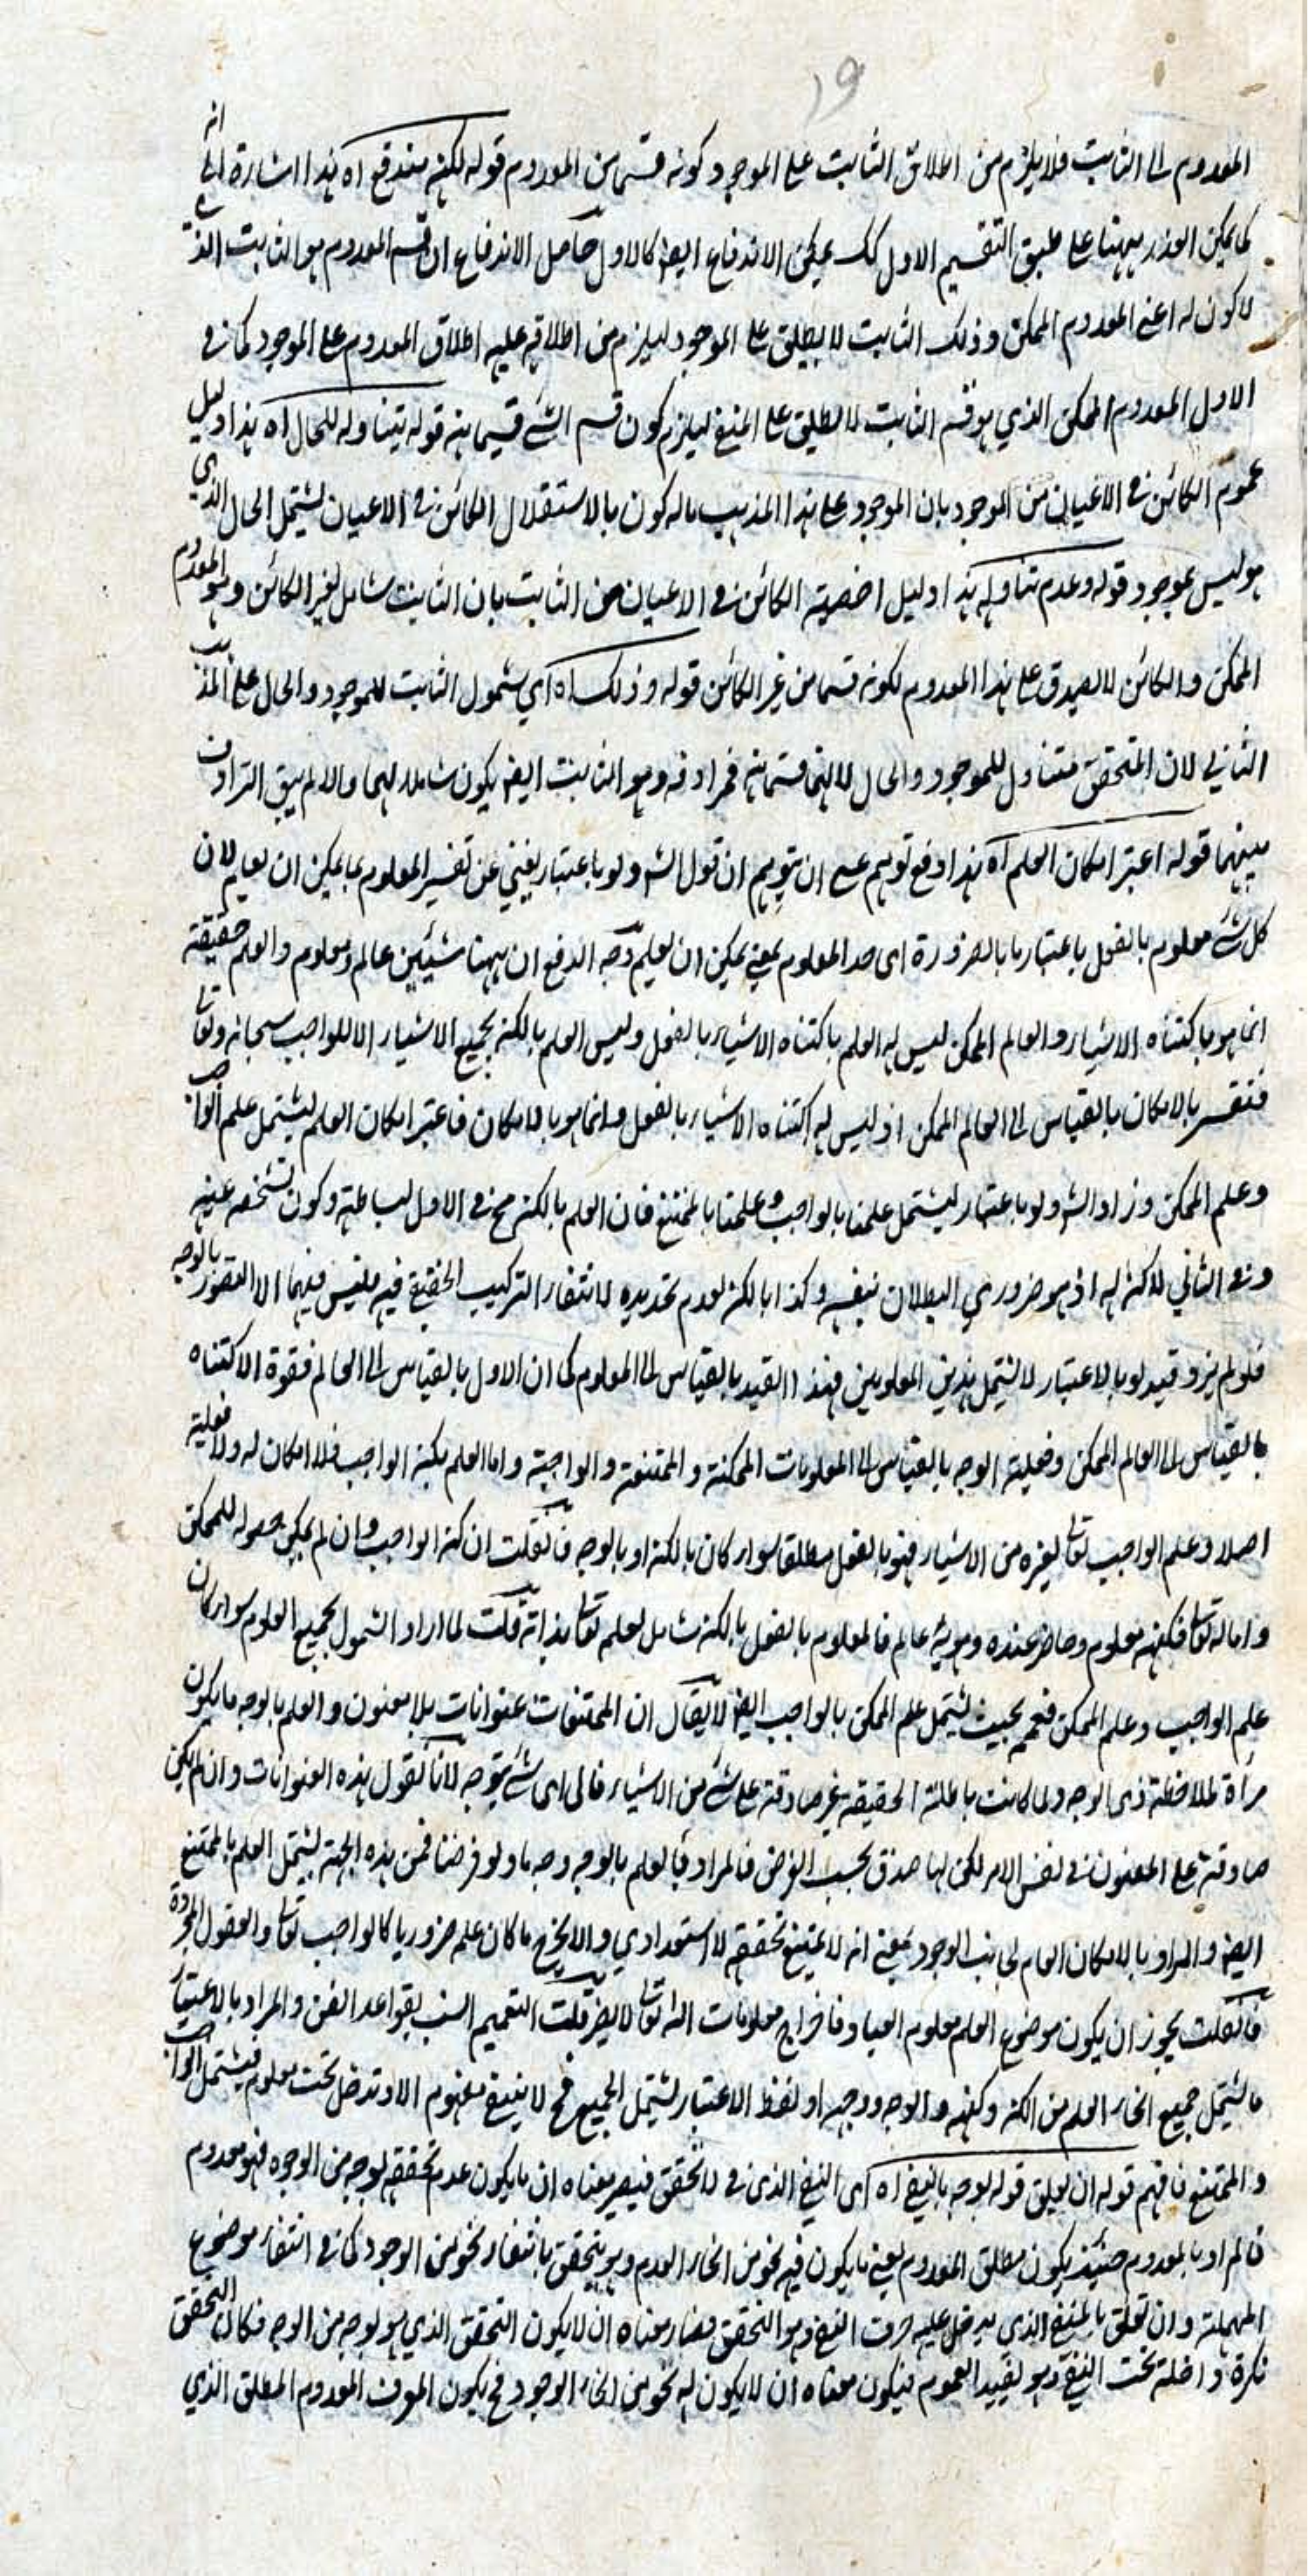 ١٩
المعدوم الى الثابت فلا يلزم من اطلاق الثابت على الموجود كونه قسما من المعدوم قوله لكنه مندفع اه هذا اشارة الى انه
كما يمكن العذر ههنا على طبق التقسيم الاول كك يمكن الاندفاع ايضا كالاول حاصل الاندفاع ان قسم المعدوم هو الثابت الذي
لا كون له اعنى المعدوم الممكن وذلك الثابت لا يطلق على الموجود ليلزم من اطلاقه عليه اطلاق المعدوم على الموجود كما فى
الاول المعدوم الممكن الذي هو قسم الثابت لا يطلق على المنفى ليلزم كون قسم الشئ قسيما منه قوله يتناوله للحال اه هذا دليل
عموم الكائن فى الاعيان من الموجود بان الموجود على هذا المذهب ما له كون بالاستقلال الكائن فى الاعيان يشتمل الحال الذي
هو ليس بموجود قوله وعدم تناوله هذا دليل اخصية الكائن فى الاعيان من الثابت بان الثابت شامل لغير الكائن وهو المعدوم
الممكن والكائن لا يصدق على هذا المعدوم لكونه قسما من غير الكائن قوله وذلك اه اي شمول الثابت للموجود والحال على المذهب
الثاني لان المتحقق متناول للموجود والحال لانهما قسما منه فمرادفه وهو الثابت ايضا يكون شاملا لهما والا لم يبق الترادف
بينهما قوله اعتبر امكان العلم اه هذا دفع توهم عسى ان يتوهم ان قول الش ولو باعتبار يغني عن تفسير المعلوم بما يمكن ان يعلم لان
كل شئ معلوم بالفعل باعتبار ما بالضرورة اى حد المعلوم بمعنى يمكن ان يعلم وجه الدفع ان ههنا شيئين عالم ومعلوم والعلم حقيقة
انما هو باكتناه الاشياء والعالم الممكن ليس له العلم باكتناه الاشياء بالفعل وليس العلم بالكنه بجميع الاشياء الا للواجب سبحانه وتعالى
فتفسر بالامكان بالقياس الى العالم الممكن اذ ليس له اكتناه الاشياء بالفعل وانما هو بالامكان فاعتبر امكان العلم ليشتمل علم الواجب
وعلم الممكن وزاد الش ولو باعتبار ليشتمل علمنا بالواجب وعلمنا بالممتنع فان العلم بالكنه مح فى الاول لبساطته وكون تشخصه عينه
وفى الثاني لا كنه له اذ هو ضروري البطلان بنفسه وكذا بالكنه لعدم تحديده لانتفاء التركيب الحقيقى فيه فليس فيهما الا التصور بالوجه
فلو لم يزد قيد لو بالاعتبار لا يشتمل هذين المعلومين فهذا القيد بالقياس الى المعلوم كما ان الاول بالقياس الى العالم فقوة الاكتناه
بالقياس الى العالم الممكن وفعلية الوجه بالقياس الى المعلومات الممكنة والممتنعة والواجبة واما العلم بكنه الواجب فلا امكان له ولا فعلية
اصلا وعلم الواجب تعالى لغيره من الاشياء فهو بالفعل مطلقا سواء كان بالكنه او بالوجه فان قلت ان كنه الواجب وان لم يمكن حصوله للممكن
واما له تعالى فكنهه معلوم وحاضر عنده وهو عالم فالمعلوم بالفعل بالكنه شامل لعلمه تعالى بذاته قلت لما اراد الشمول لجميع العلوم سواء كان
علم الواجب وعلم الممكن فعمم بحيث يشتمل علم الممكن بالواجب ايضا لا يقال ان الممتنعات عنوانات بلا معنون والعلم بالوجه ما يكون
مرآة لملاحظة ذى الوجه ولما كانت باطلة الحقيقة غير صادقة على شئ من الاشياء فالى اى شئ يتوجه لانا نقول هذه العنوانات وان لم يكن
صادقة على المعنون فى نفس الامر لكن لها صدق بحسب الفرض فالمراد بالعلم بالوجه وجه ما ولو فرضنا فمن هذه الجهة يشتمل العلم بالممتنع
ايضا والمراد بالامكان العام لجانب الوجود بمعنى انه لا يمتنع تحققه لا استعدادي والا يخرج ما كان علم ضروريا كالواجب تعالى والعقول المجردة
فان قلت يجوز ان يكون موضوع العلم معلوم العباد فاخراج معلومات الله تعالى لا يضر قلت التعميم انسب بقواعد الفن والمراد بالاعتبار
ما يشتمل جميع انحاء العلم من الكنه وكنهه والوجه ووجهه او لفظ الاعتبار يشتمل الجميع فح لا يبقى مفهوم الا وتدخل تحت معلوم فيشتمل الواجب
والممتنع فافهم قوله ان يعلق قوله بوجه بالنفى اه اى النفى الذى فى لا تحقق فيصير معناه ان ما يكون عدم تحققه بوجه من الوجوه فهو معدوم
فالمراد بالمعدوم حينئذ يكون مطلق المعدوم يعنى ما يكون فيه نحو من انحاء العدم وهو يتحقق بانتفاء نحو من الوجود كما فى انتفاء موضوع
المهملة وان تعلق بالمنفى الذي يدخل عليه حرف النفى وهو التحقق فصار معناه ان لا يكون التحقق الذي هو بوجه من الوجه فكان التحقق
نكرة داخلة تحت النفى وهو يفيد العموم فيكون معناه ان لا يكون له نحو من انحاء الوجود فح يكون المعرف المعدوم المطلق الذي